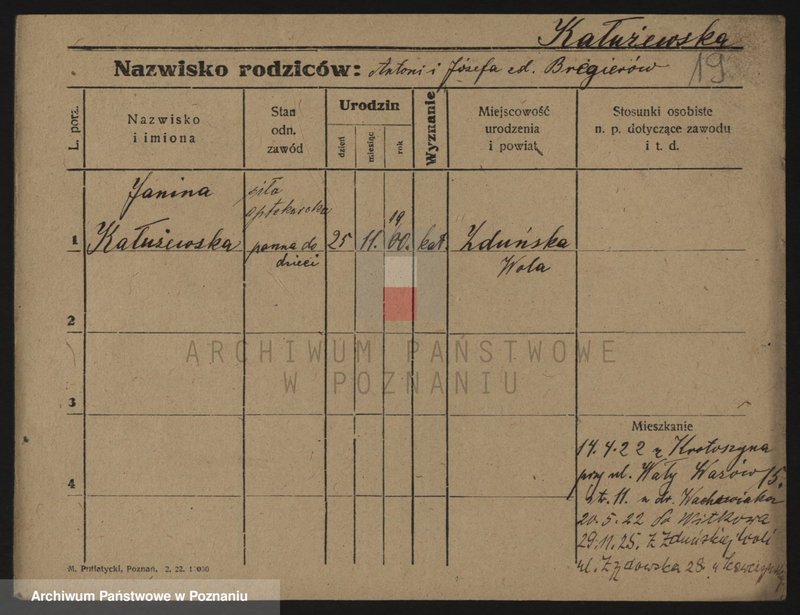 Kałużewska
19
Nazwisko rodziców: Antoni i Józefa zd. Bregierów
L. porz.
Nazwisko i imiona
Stan odn. zawód
Urodzin
dzień
miesiąc
rok
Wyznanie
Miejscowość urodzenia i powiat
Stosunki osobiste n. p. dotyczące zawodu i t. d.
Janina
siła
aptekarska
19
1 Kałużewska panna do 25 11. 00. kat. Zduńska
dzieci Wola
2
ARCHIWUM PAŃSTWOWE
W POZNANIU
3
Mieszkanie
14.4.22 z Krotoszyna
przy ul. Wały Wazów 15.
4 11. u dr. Wachowiaka
20.5.22 do Witkowa
29.11.25. z Zduńskiej Woli
ul. Żydowska 28 u
M. Putiatycki, Poznań, 2. 22.
Archiwum Państwowe w Poznaniu